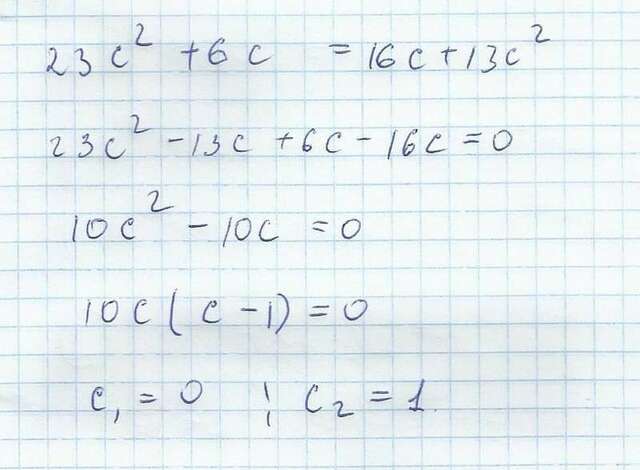 23c² + 6c = 16c + 13c²
23c² - 13c + 6c - 16c = 0
10c² - 10c = 0
10c(c - 1) = 0
c₁ = 0 ; c₂ = 1.